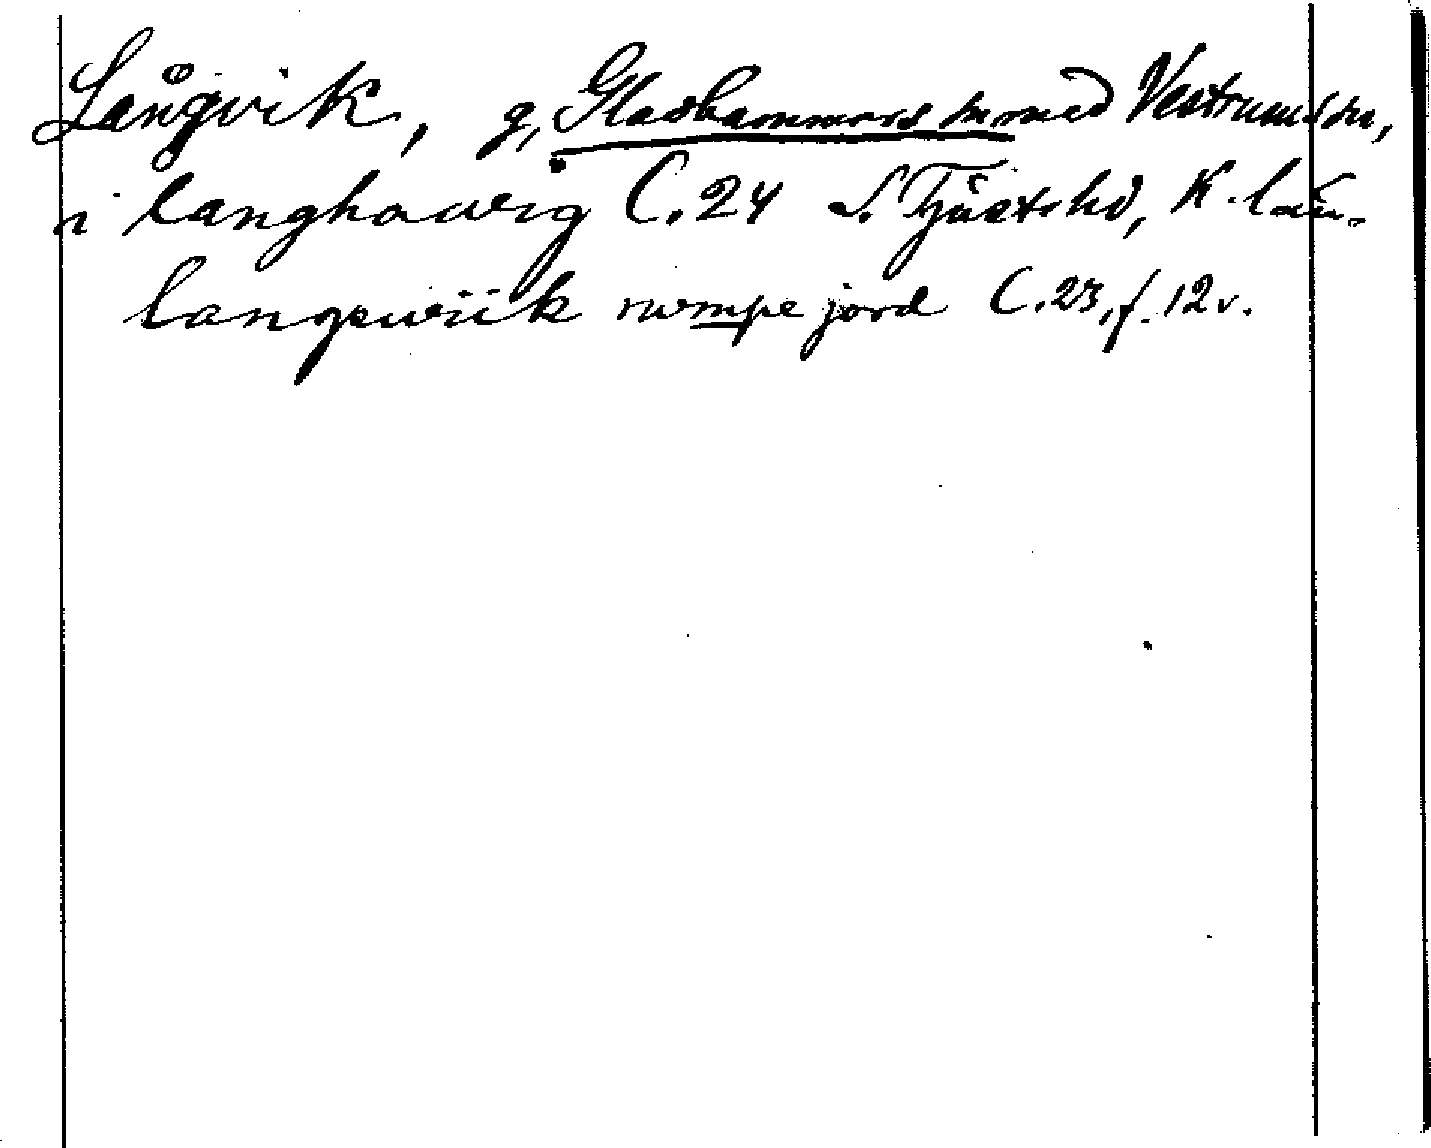 Långvik, g, Gladhammars sn med Vestrums sn,
i langhawig C.24 S. Tjüst hd, K. län.
langewiik rwmpe jord C.23, f. 12 v.